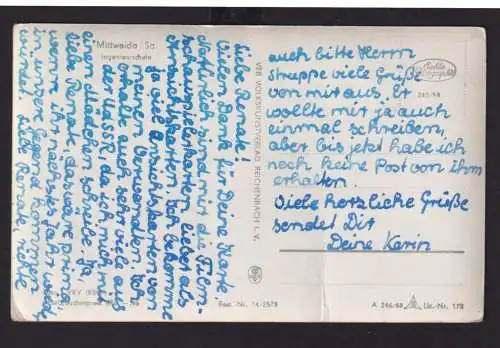 Mittweida Sa.
Ingenieurschule
Liebe Renate!
Vielen Dank für Deine Karte.
Natürlich sind mir die Film-
schauspielerkarten lieber als
Ansichtskarten. Ich bekomme
ja viel Ansichtskarten von
meinen Verwandten. Ich
erhalte auch sehr viele aus
der UdSSR, da ich mich mit
einem Mädchen schreibe. Ja,
liebe Renate, das wäre prima,
wenn ihr nächstes Jahr wieder
in unsere Gegend kommen
würdet. Liebe Renate, richte
auch bitte Herrn
Struppe viele Grüße
von mir aus. Er
wollte mir ja auch
einmal schreiben,
aber bis jetzt habe ich
noch keine Post von ihm
erhalten.
Viele herzliche Grüße
sendet Dir
Deine Karin
VEB VOLKSKUNSTVERLAG REICHENBACH i. V.
Best.-Nr. 14-2578
A 246/68
Liz.-Nr. 178